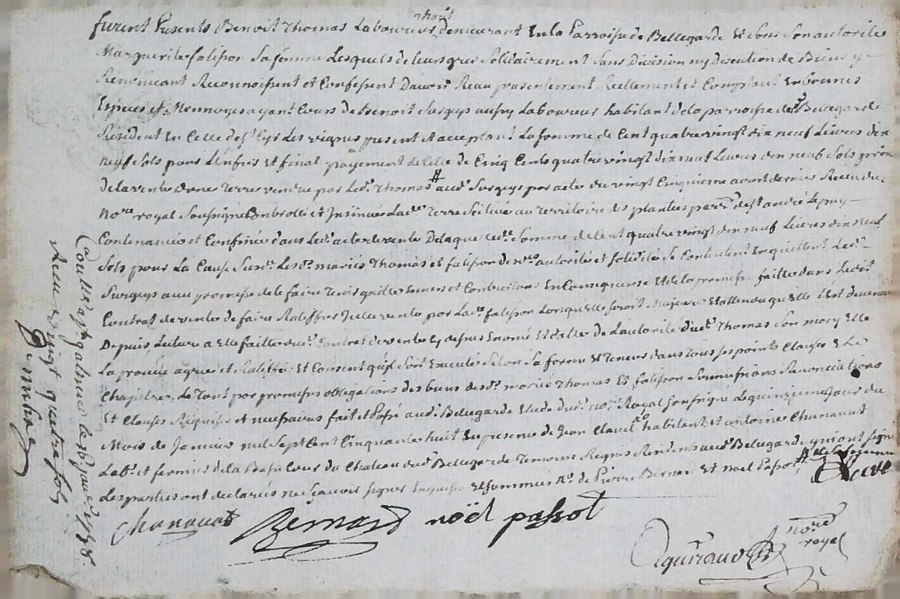 furent Presents Benoit Thomas Laboureur demeurant En la Parroisse de Bellegarde Et sous son autorité
Marguerite falipson Sa femme Lesquels de leurs gres solidairement sans Division ny Discution de Biens y
Renoncant Reconnoissent et Confessent Davoir Receu presentement Reellement et Comptant En bonnes
Especes et Monnoyes ayant Cours de Benoit Surgeys aussy Laboureur habitant de la parroisse de Bellegarde
Resident En Celle de Les vignes present et acceptant La somme de Cent quatre vingt dix neuf Livres dix
neuf sols pour L'Enfier et final payement de Celle de Cinq Cents quatre vingt dix neuf Livres dix neuf sols prix
de la vente d'une Terre vendue par Led. Thomas aud. Surgeys par acte du vingt Cinquieme avril dernier Receu du
No.re royal Soussigné Controllé et Insinué La Terre Scituée au territoire des plantées parr. de st andré Le puy
Contenancée et Confinée dans Led. acte de vente De laquelle Somme de Cent quatre vingt dix neuf Livres dix neuf
sols pour La Cause Susd. Lesd. mariés Thomas et falipson de autorité et solidité Se Contentent En quittent Led.
Surgeys avec promesse de le faire Tenir quitte Envers et Contre tous En Consequence Et de la promesse faitte dans Ledit
Contrat de vente de faire Ratiffier Icelle vente par La falipson Lorsqu'elle Seroit Majeure Et attendu qu'elle L'est devenue
Depuis, Lecture a Elle faitte dud. Contrat de vente Cy dessus Enoncé Et d'Elle De L'autorité dud. Thomas Son mary Elle
La prouvé agréé et Ratiffié Et Consent qu'il Soit Executé Selon Sa forme Et Teneur dans tous ses points Clauses Et
Chapitres Le Tout par promesses obligations des biens desd. mariés Thomas Et falipson Soumissions Renonciations
Et Clauses Requises et necessaires fait et Passé aud. Bellegarde Etude dud. no.re Royal Soussigné Le quinzieme jour du
Mois de Janvier mil Sept Cent Cinquante huit En presence de Jean habitant et antoine Chanavat
Lab.r et fermier de la Basse Cour du Chateau dud. Bellegarde Temoins Requis Residens aud. Bellegarde qui ont signé
Les parties ont déclarés ne Scavoir Signer Enquises Et Sommées de Pierre Bernard Et Noel Passot
Chanavat Bernard noël passot
no.re royal
Controllé a st galmier le 16 janv. 1758.
Receu vingt quatre sols